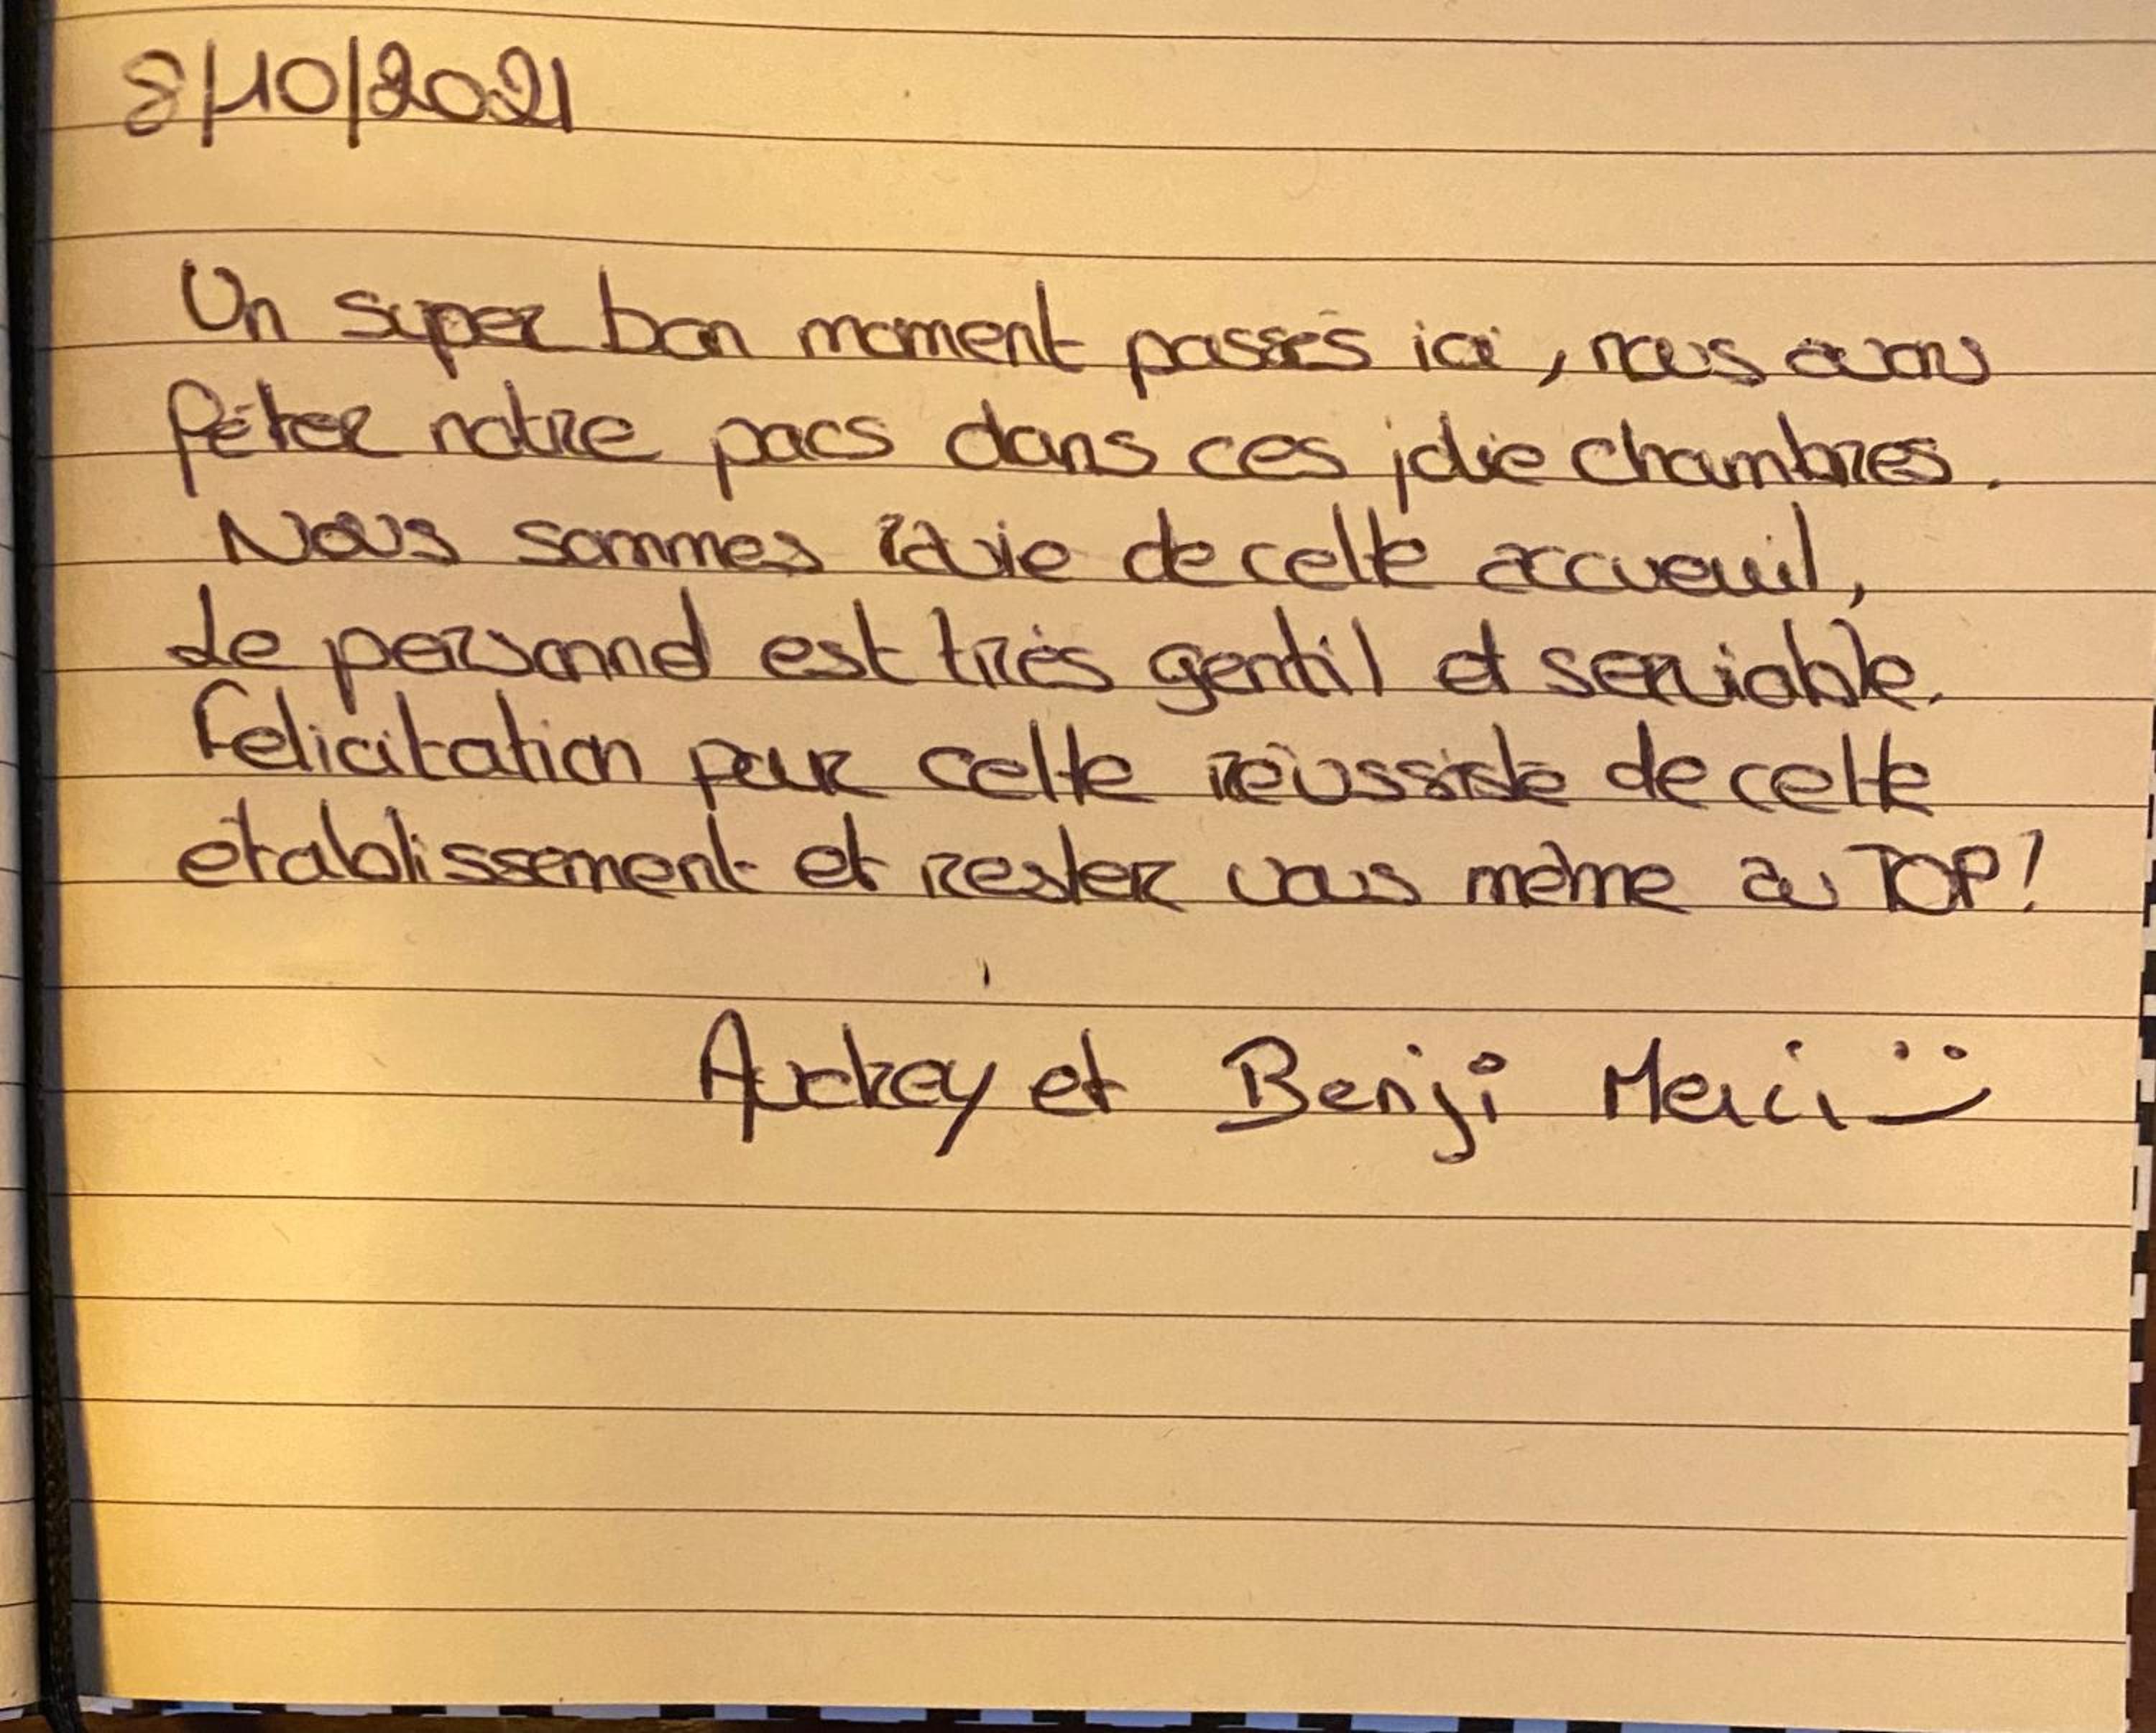 8/10/2021
Un super bon moment passés ici, nous avons
fêter notre pacs dans ces jolie chambres.
Nous sommes ravie de cette accueuil,
Le personnel est très gentil et serviable.
Felicitation pour cette réussiste de cette
établissement et rester vous même au TOP!
et Benji Merci :)